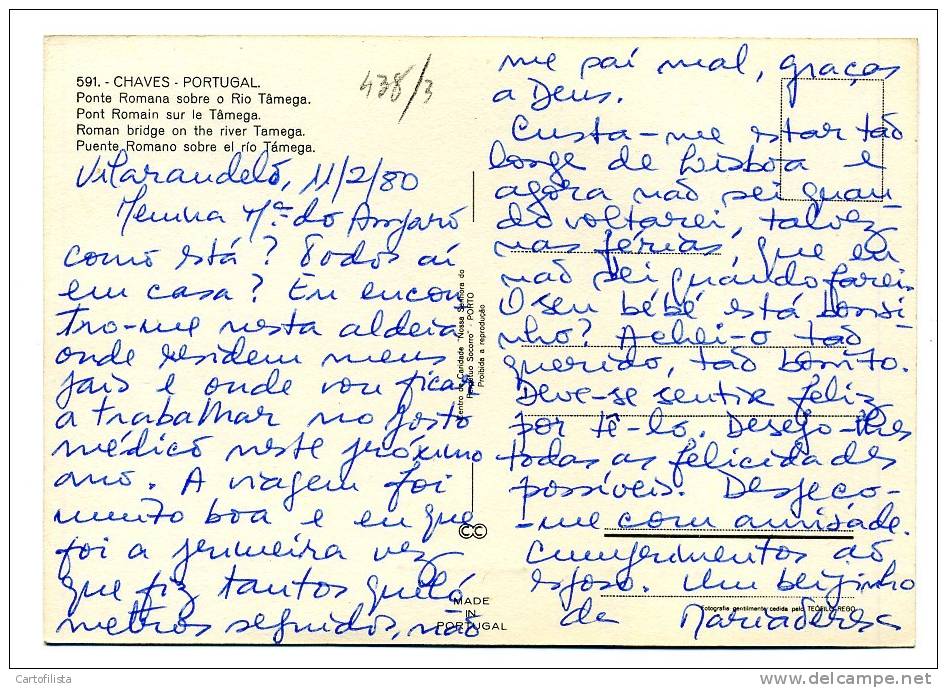 591. - CHAVES - PORTUGAL.
Ponte Romana sobre o Rio Tâmega.
Pont Romain sur le Tâmega.
Roman bridge on the river Tamega.
Puente Romano sobre el río Támega.
438/3
Vilarandelo, 11/2/80
Menina Mª do Amparo
como está? Todos aí
em casa? Eu encon
tro-me nesta aldeia
onde residem meus
pais e onde vou ficar
a trabalhar no posto
médico neste próximo
ano. A viagem foi
muito boa e eu que
foi a primeira vez
que fiz tantos quiló
metros seguidos, não
me saí mal, graças
a Deus.
Custa-me estar tão
longe de Lisboa e
agora não sei quan
do voltarei, talvez
nas férias, que eu
não sei quando farei.
O seu bébé está bonsi
nho? Achei-o tão
querido, tão bonito.
Deve-se sentir feliz
por tê-lo. Desejo-lhes
todas as felicidades
possíveis. Despeço-
-me com amizade.
Cumprimentos ao
esposo. Um beijinho
de Mariateresa
Centro de Caridade "Nossa Senhora do
Perpétuo Socorro" - PORTO
Proibida a reprodução
CC
MADE
IN
PORTUGAL
Fotografia gentilmente cedida pelo TEÓFILO REGO
Cartofilista
delcampe.net